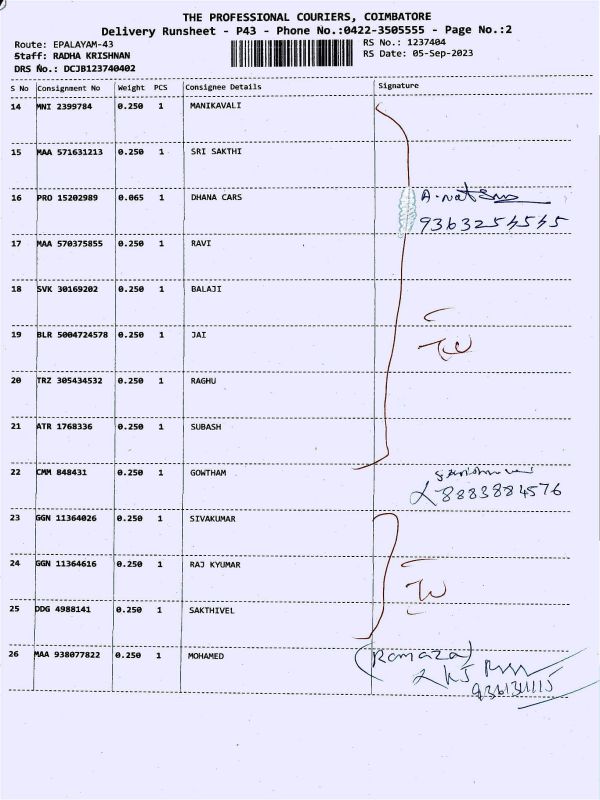 THE PROFESSIONAL COURIERS, COIMBATORE
Delivery Runsheet - P43 - Phone No.:0422-3505555 - Page No.:2
Route: EPALAYAM-43
RS No.: 1237404
Staff: RADHA KRISHNAN
RS Date: 05-Sep-2023
DRS No.: DCJB123740402
S No Consignment No Weight PCS Consignee Details Signature
14 MNI 2399784 0.250 1 MANIKAVALI
15 MAA 571631213 0.250 1 SRI SAKTHI
16 PRO 15202989 0.065 1 DHANA CARS
9363254545
17 MAA 570375855 0.250 1 RAVI
18 SVK 30169202 0.250 1 BALAJI
19 BLR 5004724578 0.250 1 JAI
20 TRZ 305434532 0.250 1 RAGHU
21 ATR 1768336 0.250 1 SUBASH
22 CMM 848431 0.250 1 GOWTHAM
8883884576
23 GGN 11364026 0.250 1 SIVAKUMAR
24 GGN 11364616 0.250 1 RAJ KYUMAR
25 DDG 4988141 0.250 1 SAKTHIVEL
26 MAA 938077822 0.250 1 MOHAMED